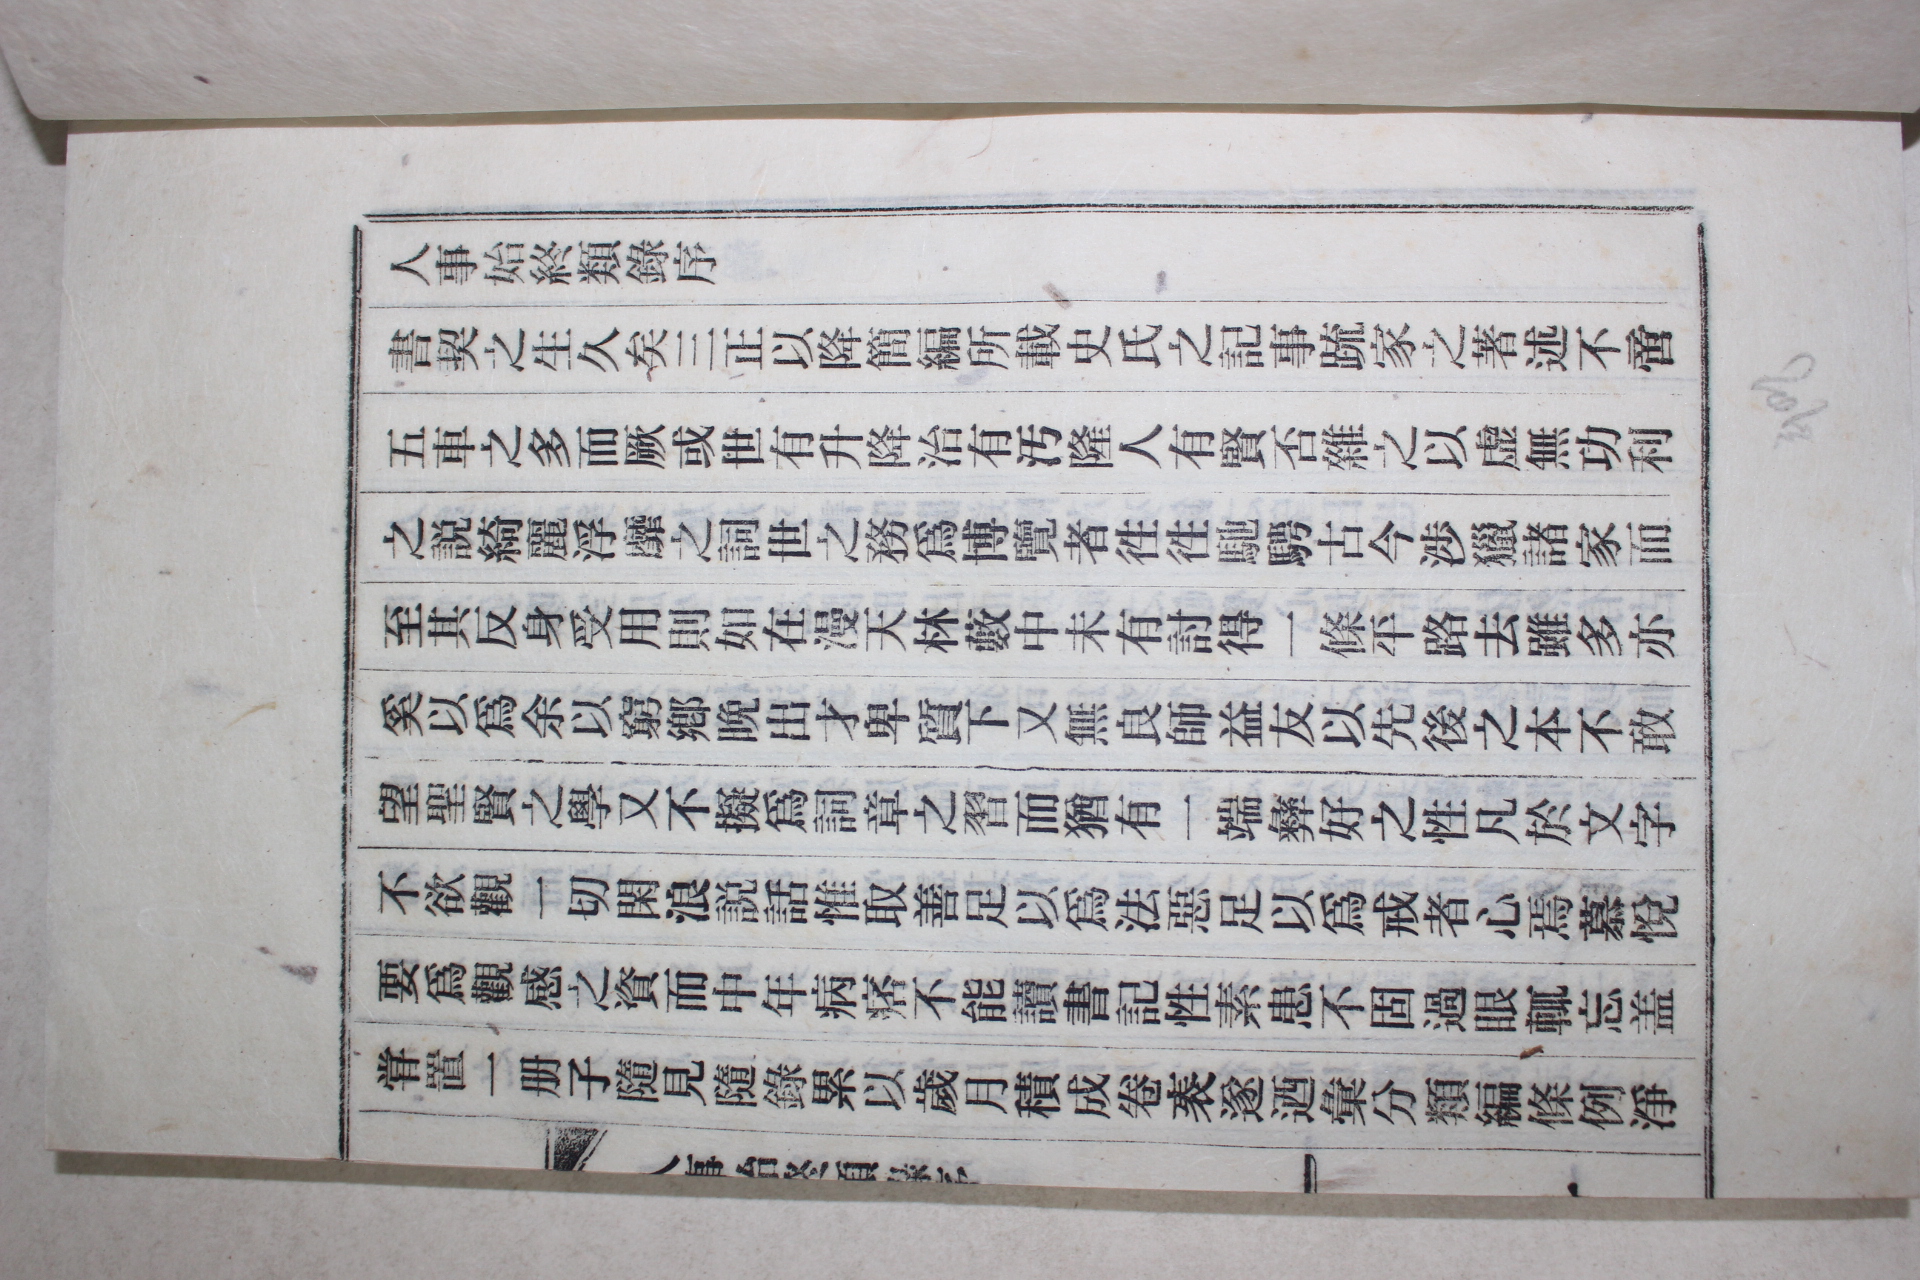 人事始終類錄序
書契之生久矣三正以降簡編所載史氏之記事䟽家之著述不啻
五車之多而厥或世有升降治有汚隆人有賢否雜之以虛無功利
之説綺麗浮靡之詞世之務爲博覽者徃徃馳騁古今涉獵諸家而
至其反身受用則如在漫天林藪中未有討得一條平路去雖多亦
奚以爲余以窮鄕晚出才卑質下又無良師益友以先後之本不敢
望聖賢之學又不擬爲詞章之習而猶有一端彝好之性凡於文字
不欲觀一切閑浪説話惟取善足以爲法惡足以爲戒者心焉慕悅
要爲觀感之資而中年病痞不能讀書記性素患不固過眼輒忘盖
甞置一册子隨見隨錄累以歲月積成卷袠遂迺彙分類編條例淨
人事始終類錄序
一